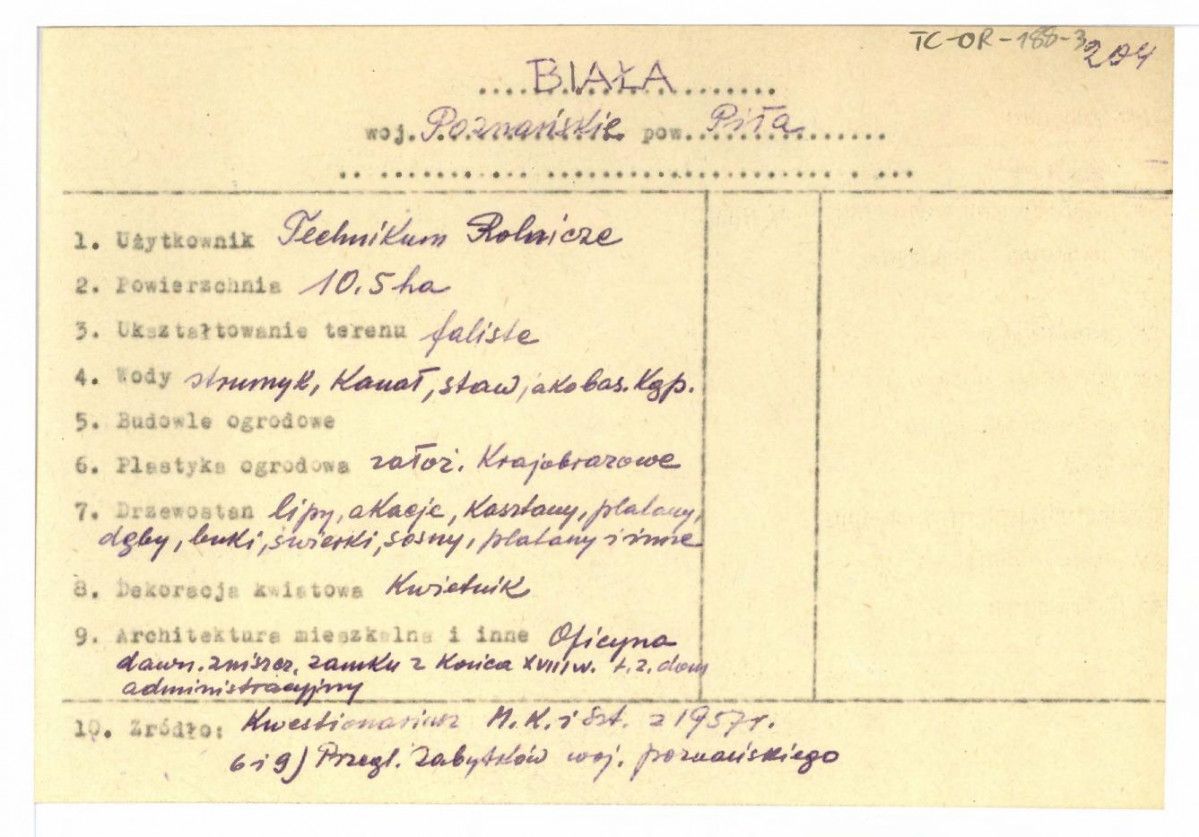 TC-OR-188-3
204
BIAŁA
woj. Poznańskie pow. Piła
1. Użytkownik Technikum Rolnicze
2. Powierzchnia 10,5 ha
3. Ukształtowanie terenu faliste
4. Wody strumyk, Kanał, staw, jako bas. Kąp.
5. Budowle ogrodowe
6. Plastyka ogrodowa załoz. Krajobrazowe
7. Drzewostan lipy, akacje, Kasztany, platany,
dęby, buki, świerki, sosny, platany i inne
8. Dekoracja kwiatowa Kwietnik
9. Architektura mieszkalna i inne Oficyna
dawn. zniszcz. zamku z Końca XVIII w. t.z. dom
administracyjny
10. Zródło: Kwestionariusz M.K. i Szt. z 1957 r.
6 i 9) Przegl. Zabytków woj. poznańskiego